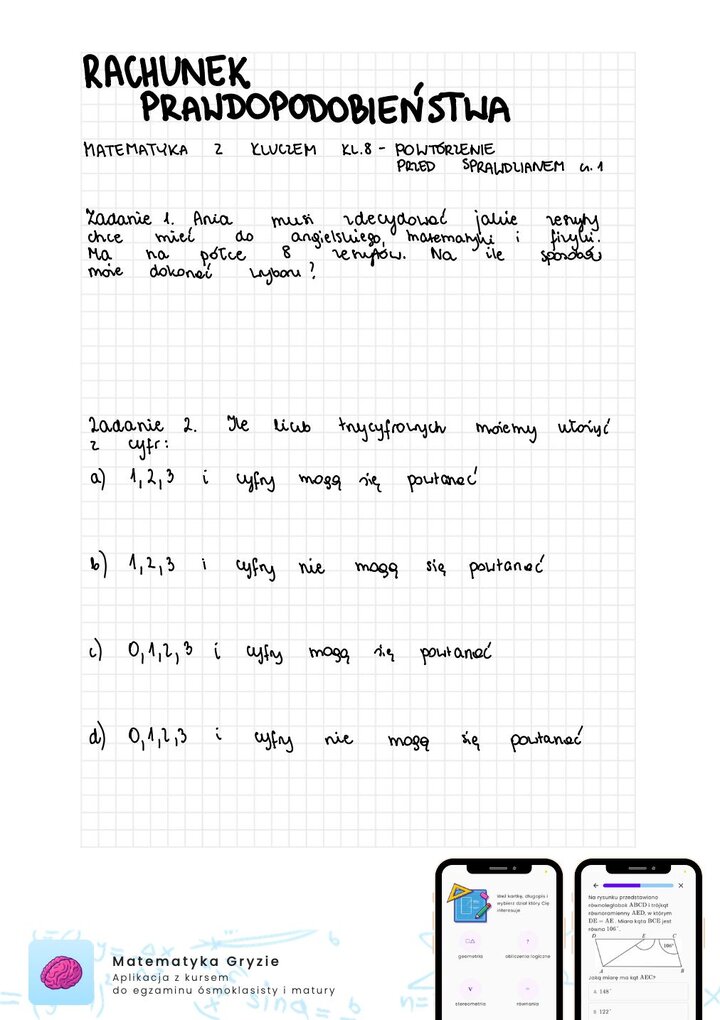 RACHUNEK
PRAWDOPODOBIEŃSTWA
MATEMATYKA Z KLUCZEM KL.8 - POWTÓRZENIE
PRZED SPRAWDZIANEM cz. 1
Zadanie 1. Ania musi zdecydować jakie zeszyty
chce mieć do angielskiego, matematyki i fizyki.
Ma na półce 8 zeszytów. Na ile sposobów
może dokonać wyboru?
Zadanie 2. Ile liczb trzycyfrowych możemy ułożyć
z cyfr:
a) 1,2,3 i cyfry mogą się powtarzać
b) 1,2,3 i cyfry nie mogą się powtarzać
c) 0,1,2,3 i cyfry mogą się powtarzać
d) 0,1,2,3 i cyfry nie mogą się powtarzać
Matematyka Gryzie
Aplikacja z kursem
do egzaminu ósmoklasisty i matury
Weź kartkę, długopis i
wybierz dział który Cię
interesuje
geometria
obliczenia logiczne
stereometria
równania
Na rysunku przedstawiono
równoległobok ABCD i trójkąt
równoramienny AED, w którym
DE = AE. Miara kąta BCE jest
równa 106°.
D E C
106°
A B
Jaką miarę ma kąt AEC?
A. 148°
B. 122°